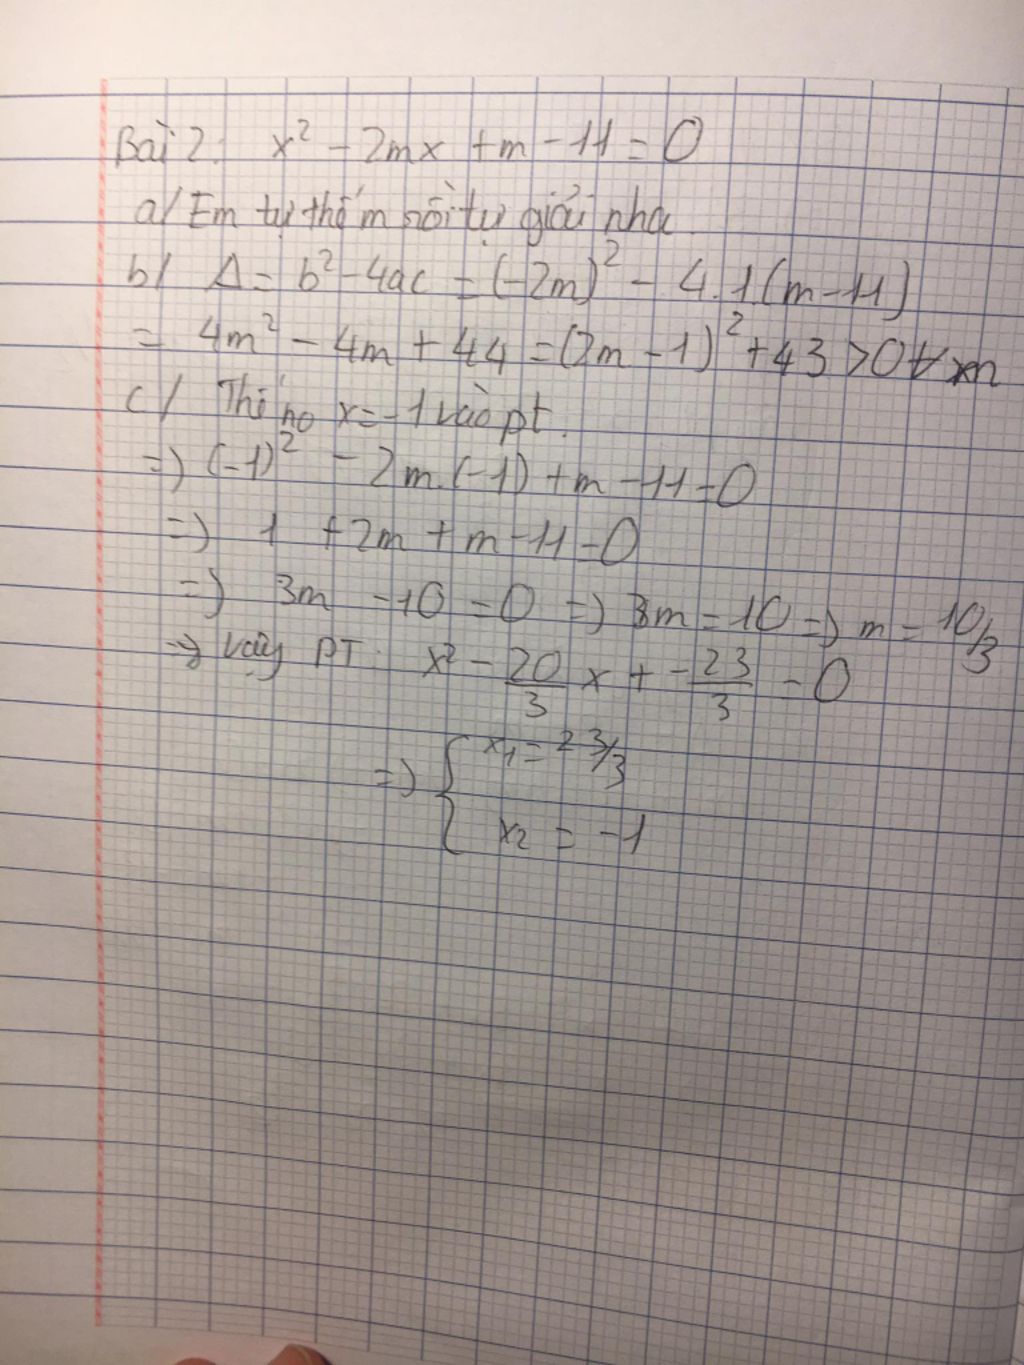 Bài 2: x² - 2mx + m - 11 = 0
a/ Em tự thế m rồi tự giải nha
b/ Δ = b² - 4ac = (-2m)² - 4.1(m - 11)
= 4m² - 4m + 44 = (2m - 1)² + 43 > 0 ∀ m
c/ Thế no x = -1 vào pt.
=> (-1)² - 2m.(-1) + m - 11 = 0
=> 1 + 2m + m - 11 = 0
=> 3m - 10 = 0 => 3m = 10 => m = 10/3
=> Vậy PT: x² - 20/3 x + -23/3 = 0
=> { x₁ = 23/3
x₂ = -1